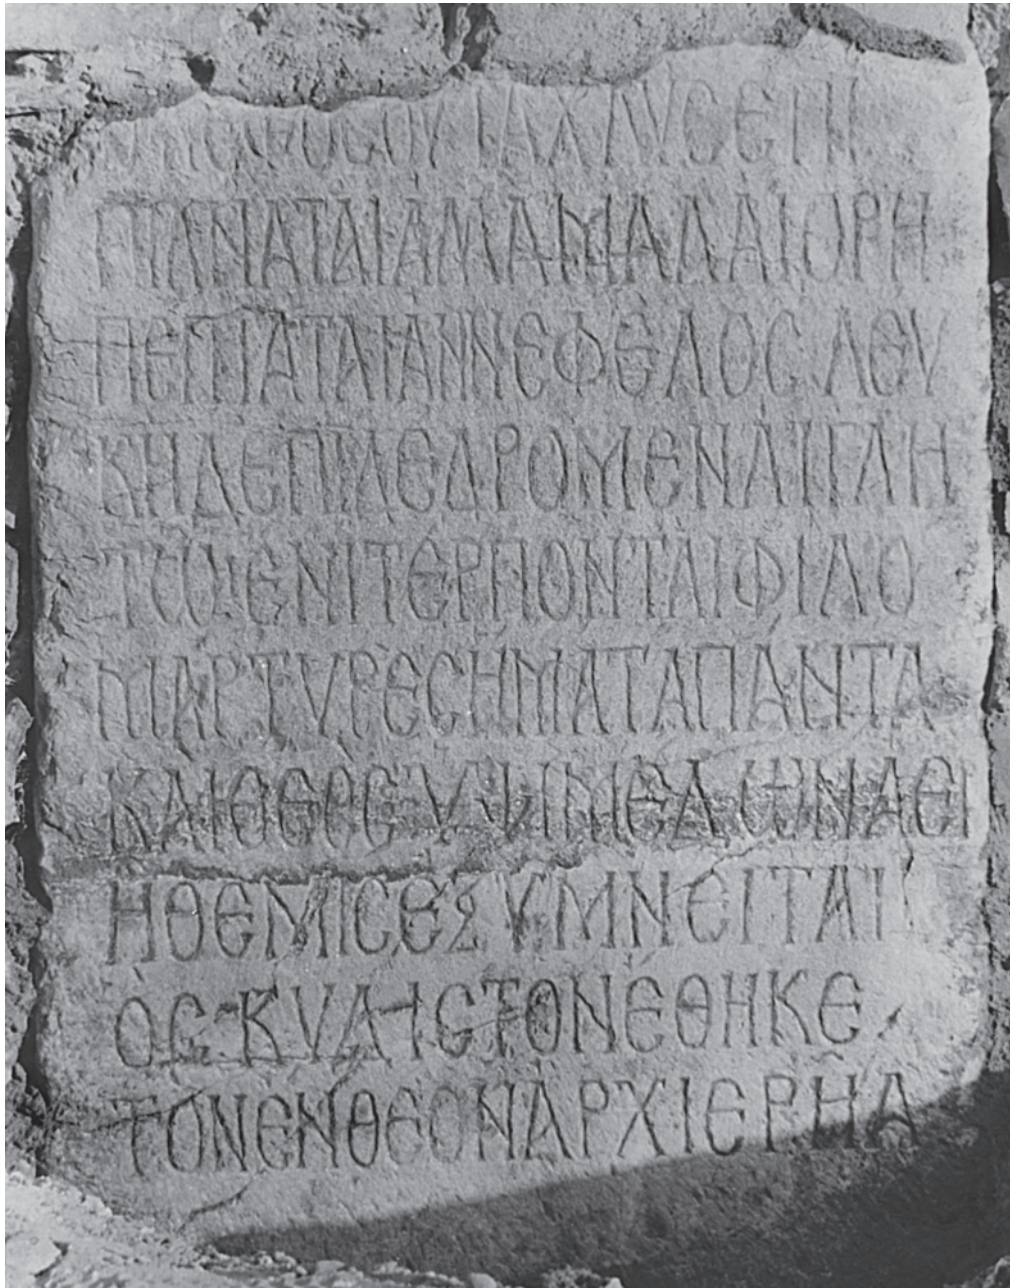 ΟΥΤΑΧΛΥCΕΠΙ
ΠΙΛΝΑΤΑΙΑΛΛΑΜΑΛΑΙΘΡΗ
ΠΕΠΤΑΤΑΙΑΝΝΕΦΕΛΟCΛΕΥ
ΚΗΔΕΠΙΔΕΔΡΟΜΕΝΑΙΓΛΗ
ΤΩΙΕΝΙΤΕΡΠΟΝΤΑΙΦΙΛΟ
ΜΑΡΤΥΡΕCΗΜΑΤΑΠΑΝΤΑ
ΚΑΙΘΕΟCΥΨΙΜΕΔΩΝΑΕΙ
ΗΘΕΜΙCΕΣΥΜΝΕΙΤΑΙ
ΟCΚΥΔΙCΤΟΝΕΘΗΚΕ
ΤΟΝΕΝΘΕΟΝΑΡΧΙΕΡΗΑ